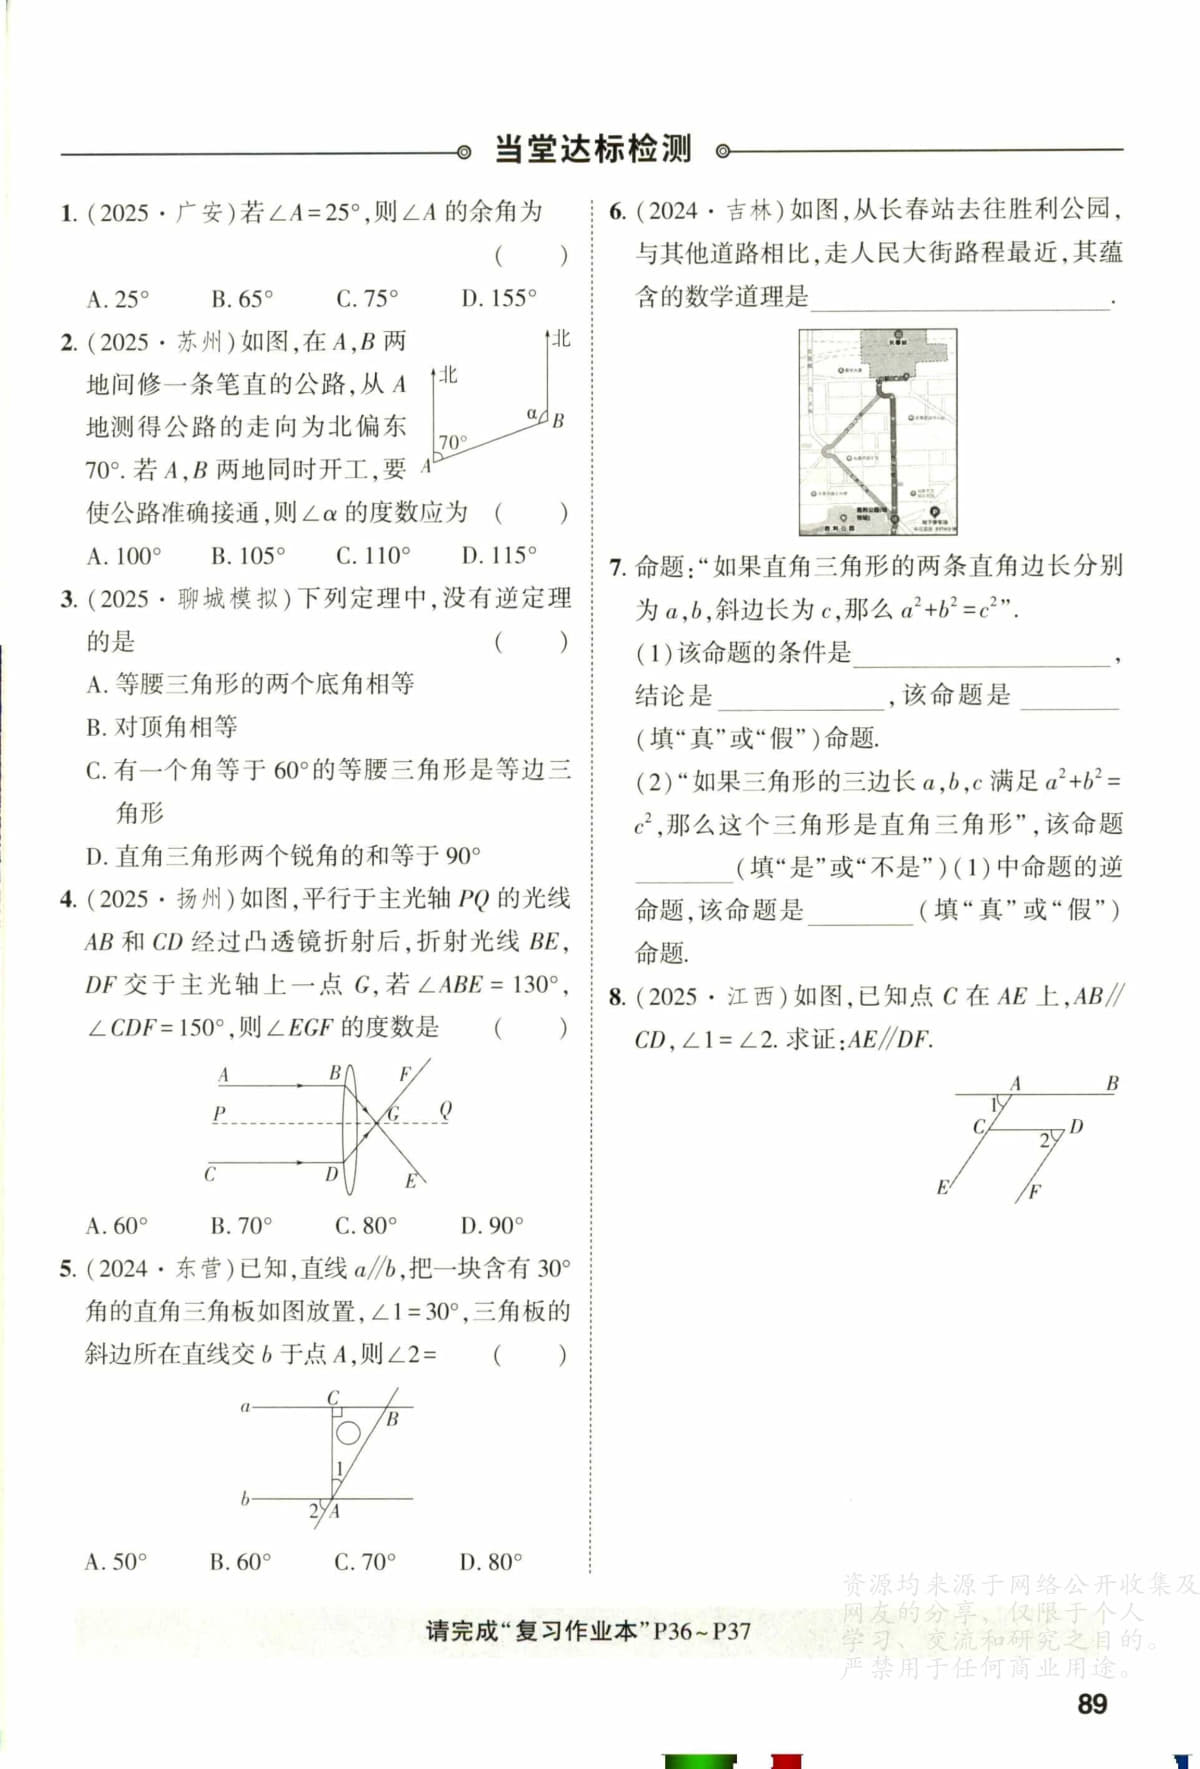 当堂达标检测
1. (2025·广安)若∠A=25°,则∠A的余角为
(    )
A. 25° B. 65° C. 75° D. 155°
2. (2025·苏州)如图,在A,B两
地间修一条笔直的公路,从A
地测得公路的走向为北偏东
70°.若A,B两地同时开工,要
使公路准确接通,则∠α的度数应为 (    )
北
北
α
B
70°
A
A. 100° B. 105° C. 110° D. 115°
3. (2025·聊城模拟)下列定理中,没有逆定理
的是 (    )
A. 等腰三角形的两个底角相等
B. 对顶角相等
C. 有一个角等于60°的等腰三角形是等边三
角形
D. 直角三角形两个锐角的和等于90°
4. (2025·扬州)如图,平行于主光轴PQ的光线
AB和CD经过凸透镜折射后,折射光线BE,
DF交于主光轴上一点G,若∠ABE=130°,
∠CDF=150°,则∠EGF的度数是 (    )
A B F
P G Q
C D E
A. 60° B. 70° C. 80° D. 90°
5. (2024·东营)已知,直线a∥b,把一块含有30°
角的直角三角板如图放置,∠1=30°,三角板的
斜边所在直线交b于点A,则∠2= (    )
C
a
B
1
b
2 A
A. 50° B. 60° C. 70° D. 80°
6. (2024·吉林)如图,从长春站去往胜利公园,
与其他道路相比,走人民大街路程最近,其蕴
含的数学道理是____________.
长春站
胜利公园
7. 命题:“如果直角三角形的两条直角边长分别
为a,b,斜边长为c,那么a²+b²=c²”.
(1)该命题的条件是____________,
结论是________,该命题是_____
(填“真”或“假”)命题.
(2)“如果三角形的三边长a,b,c满足a²+b²=
c²,那么这个三角形是直角三角形”,该命题
_____(填“是”或“不是”)(1)中命题的逆
命题,该命题是_____(填“真”或“假”)
命题.
8. (2025·江西)如图,已知点C在AE上,AB∥
CD,∠1=∠2.求证:AE∥DF.
A B
1
C D
2
E F
请完成“复习作业本”P36~P37
资源均来源于网络公开收集及
网友的分享、仅限于个人
学习、交流和研究之目的。
严禁用于任何商业用途。
89